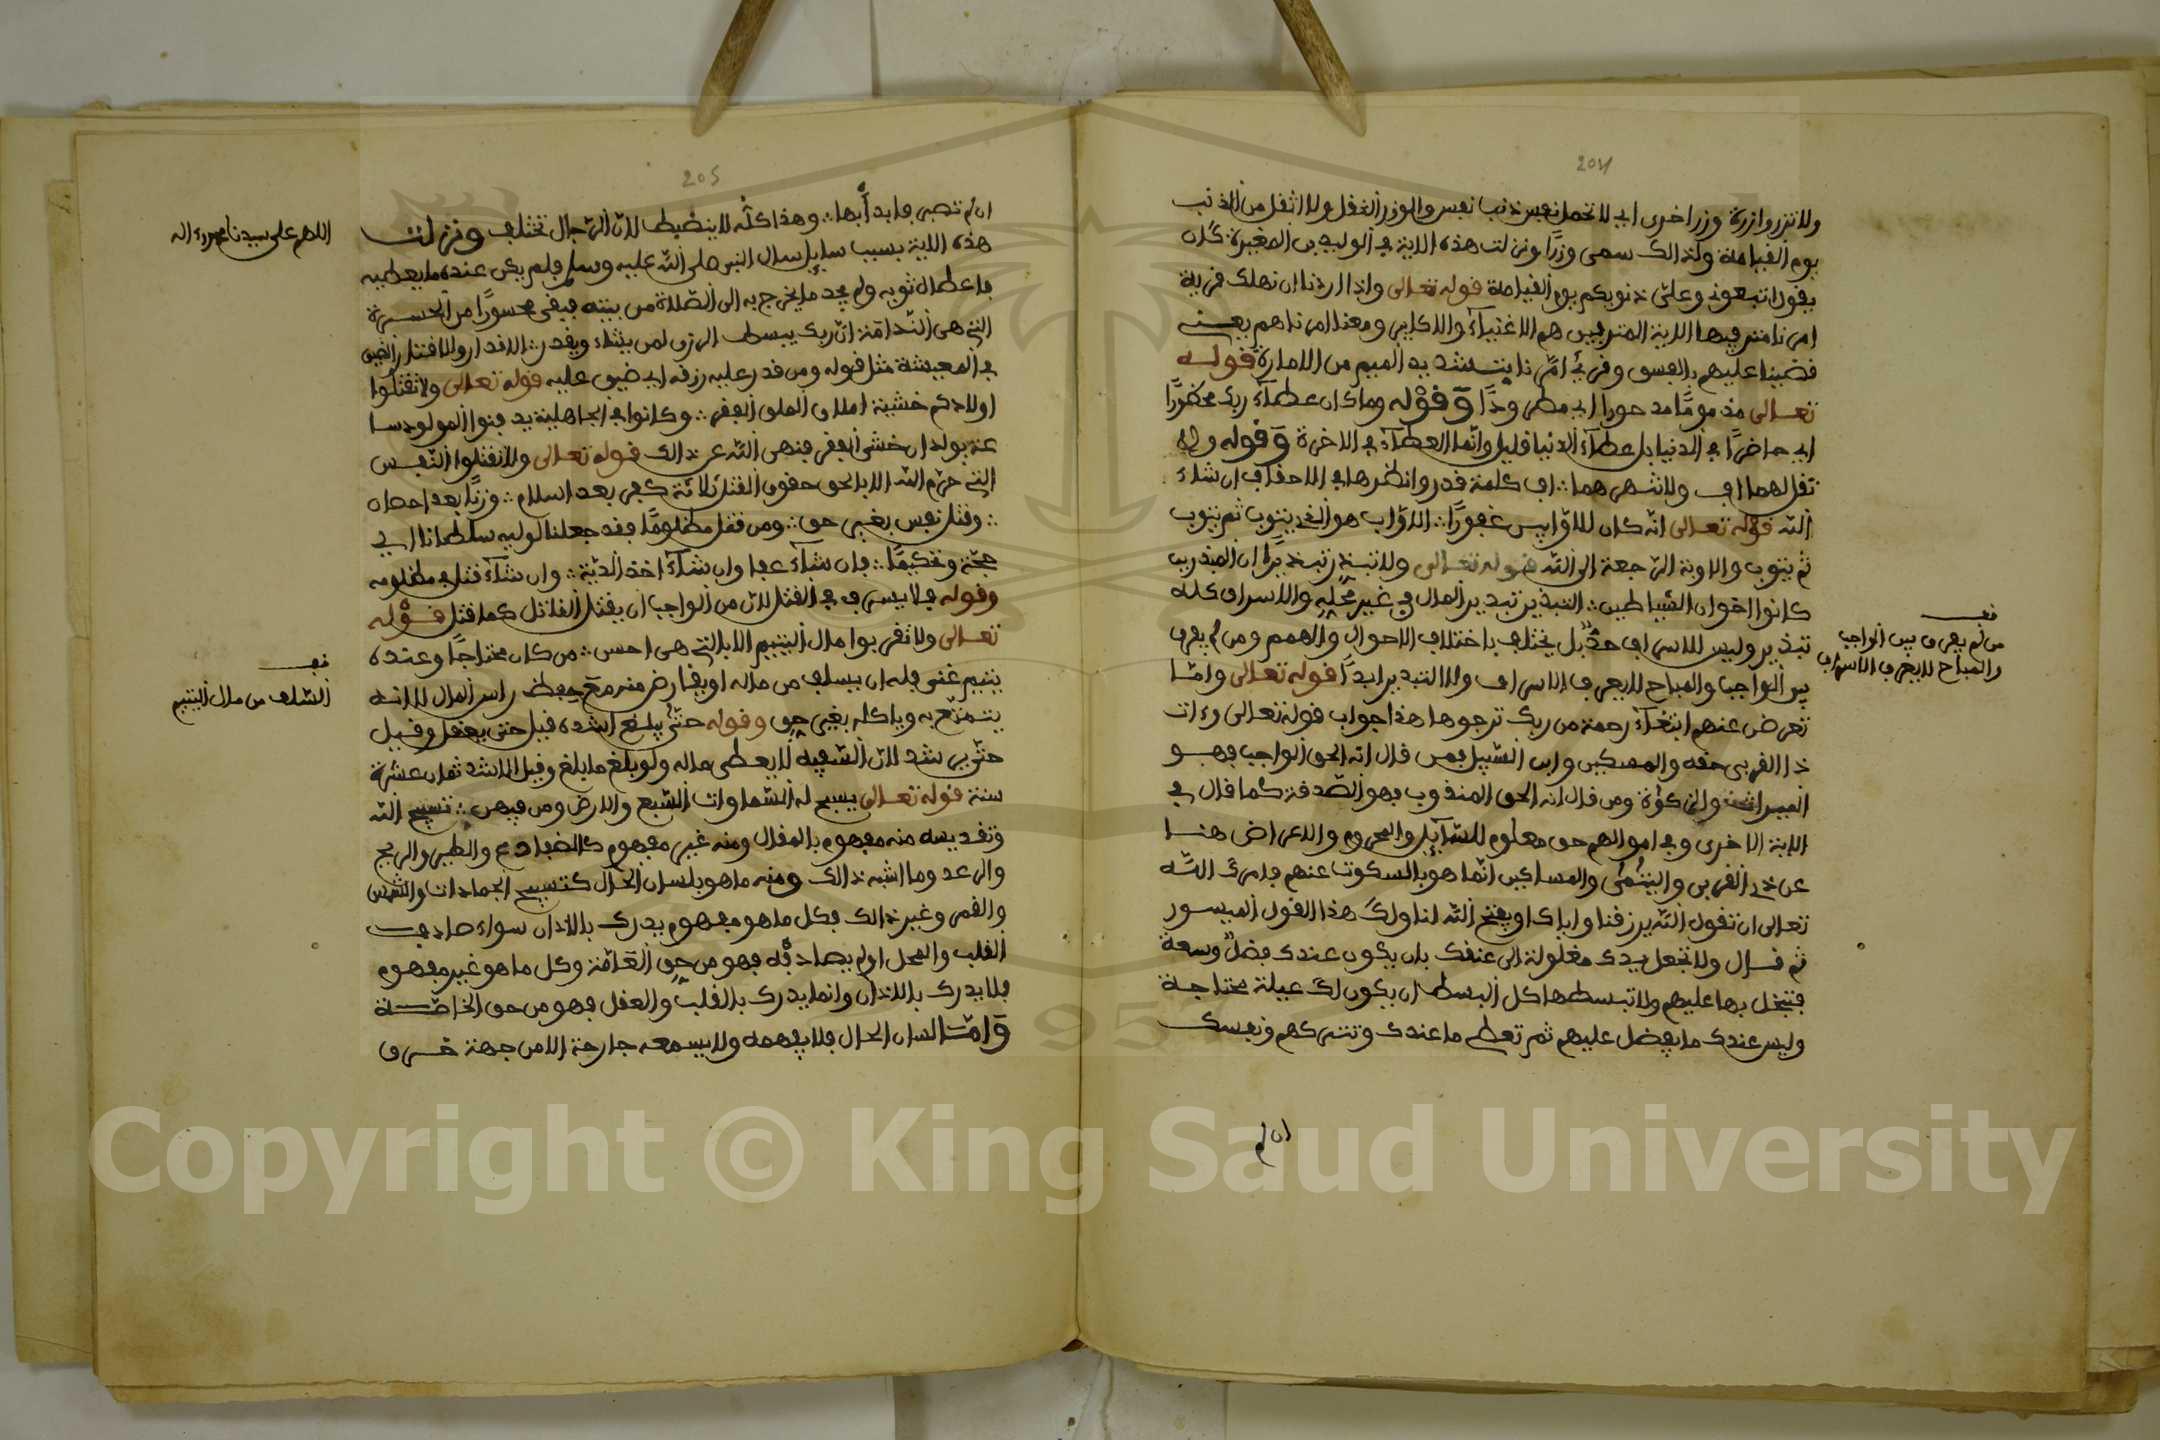 204
ولا تزر وازرة وزر اخرى اي لا تحمل نفس ذنب نفس والوزر الثقل ولا اثقل من الذنب
يوم القيامة ولذالك سمي وزرا ونزلت هذه الاية في الوليد بن المغيرة كان
يقول اتبعوني وعلي ذنوبكم يوم القيامة قوله تعالى واذا اردنا ان نهلك قرية
امرنا مترفيها الاية المترفين هم الاغنياء والاكابر ومعنا امرناهم يعني
قضينا عليهم بالفسق وقرئ امرنا بتشديد الميم من الامارة قوله
تعالى مذموما مدحورا اي مطرودا وقوله وما كان عطاء ربك محظورا
اي حاضرا في الدنيا بل عطاء الدنيا قليل وانما العطاء في الاخرة وقوله ولا
تقل لهما اف ولا تنهرهما ∴ اف كلمة قدر وانظرها في الاحقاف ان شاء
الله قوله تعالى انه كان للاوابين غفورا ∴ الاواب هو الذي يتوب ثم يتوب
ثم يتوب والاوبة الرجعة الى الله قوله تعالى ولا تبذر تبذيرا ان المبذرين
كانوا اخوان الشياطين ∴ التبذير تبذير المال في غير محله والاسراف كله
تبذير وليس للاسراف حد بل يختلف باختلاف الاحوال والهمم ومن لم يفرق
بين الواجب والمباح لا يعرف الاسراف ولا التبذير ابدا قوله تعالى واما
تعرض عنهم ابتغاء رحمة من ربك ترجوها هذا جواب قوله تعالى وءات
ذا القربى حقه والمسكين وابن السبيل فمن قال انه الحق الواجب فهو
الميراث والزكوة ومن قال انه الحق المندوب فهو الصدقة كما قال في
الاية الاخرى وفي اموالهم حق معلوم للسآيل والمحروم والاعراض هنا
عن ذي القربى واليتمى والمساكين انما هو بالسكوت عنهم فامرك الله
تعالى ان تقول الله يرزقنا واياك او يفتح الله لنا ولك هذا القول الميسور
ثم قال ولا تجعل يدك مغلولة الى عنقك بان يكون عندك فضل وسعة
فتبخل بها عليهم ولا تبسطها كل البسط ان يكون لك عيلة محتاجة
وليس عندك ما يفضل عليهم ثم تعطي ما عندك وتتركهم ونفسك
ان لم
قف
من لم يفرق بين الواجب
والمباح لا يعرف الاسراف
205
ان لم تصبر فابدأ بها ∴ وهذا كله لا ينضبط لان الرجال تختلف ونزلت
هذه الاية بسبب سايل سال النبي صلى الله عليه وسلم فلم يكن عنده ما يعطيه
فاعطاه ثوبه ولم يجد ما يخرج به الى الصلاة من بيته فبقي محسورا من الحسرة
التي هي الندامة ان ربك يبسط الرزق لمن يشاء ويقدر ∴ الاقدار والاقتار الضيق
في المعيشة مثل قوله ومن قدر عليه رزقه اي ضيق عليه قوله تعالى ولا تقتلوا
اولادكم خشية املاق الملق الفقر ∴ وكانوا في الجاهلية يدفنوا المولود سا
عة يولد ان خشي الفقر فنهى الله عن ذالك قوله تعالى ولا تقتلوا النفس
التي حرم الله الا بالحق حقوق القتل ثلاثة كفر بعد اسلام ∴ وزنا بعد احصان
∴ وقتل نفس بغير حق ∴ ومن قتل مظلوما فقد جعلنا لوليه سلطانا اي
حجة وتحكيما ∴ فان شاء عفا وان شاء اخذ الدية ∴ وان شاء قتل في مظلومه
وقوله فلا يسرف في القتل لان من الواجب ان يقتل القاتل كما قتل قوله
تعالى ولا تقربوا مال اليتيم الا بالتي هي احسن ∴ من كان محتاجا وعنده
يتيم غني فله ان يسلف من ماله او يقارض منه مع حفظ راس المال لا انه
يتمزع به وياكله بغير حق وقوله حتى يبلغ اشده قيل حتى يعقل وقيل
حتى يرشد لان السفيه لا يعطى ماله ولو بلغ ما بلغ وقيل الاشد ثمان عشرة
سنة قوله تعالى يسبح له السماوات السبع والارض ومن فيهن ∴ تسبيح الله
وتقديسه منه مفهوم بالمقال ومنه غير مفهوم كالضفادع والطير والريح
والرعد وما اشبه ذالك ومنه ما هو بلسان الحال كتسبيح الجمادات والشمس
والقمر وغير ذالك فكل ما هو مفهوم يدرك بالاذان سواء صادف
القلب والمحل او لم يصادفه فهو من حق العامة وكل ما هو غير مفهوم
فلا يدرك بالاذان وانما يدرك بالقلب والعقل فهو من حق الخاصة
واما لسان الحال فلا يفهمه ولا يسمعه جارحة الا من جهة خرق
اللهم صلى على سيدنا محمد وءاله
قف
السلف من مال اليتيم
Copyright © King Saud University